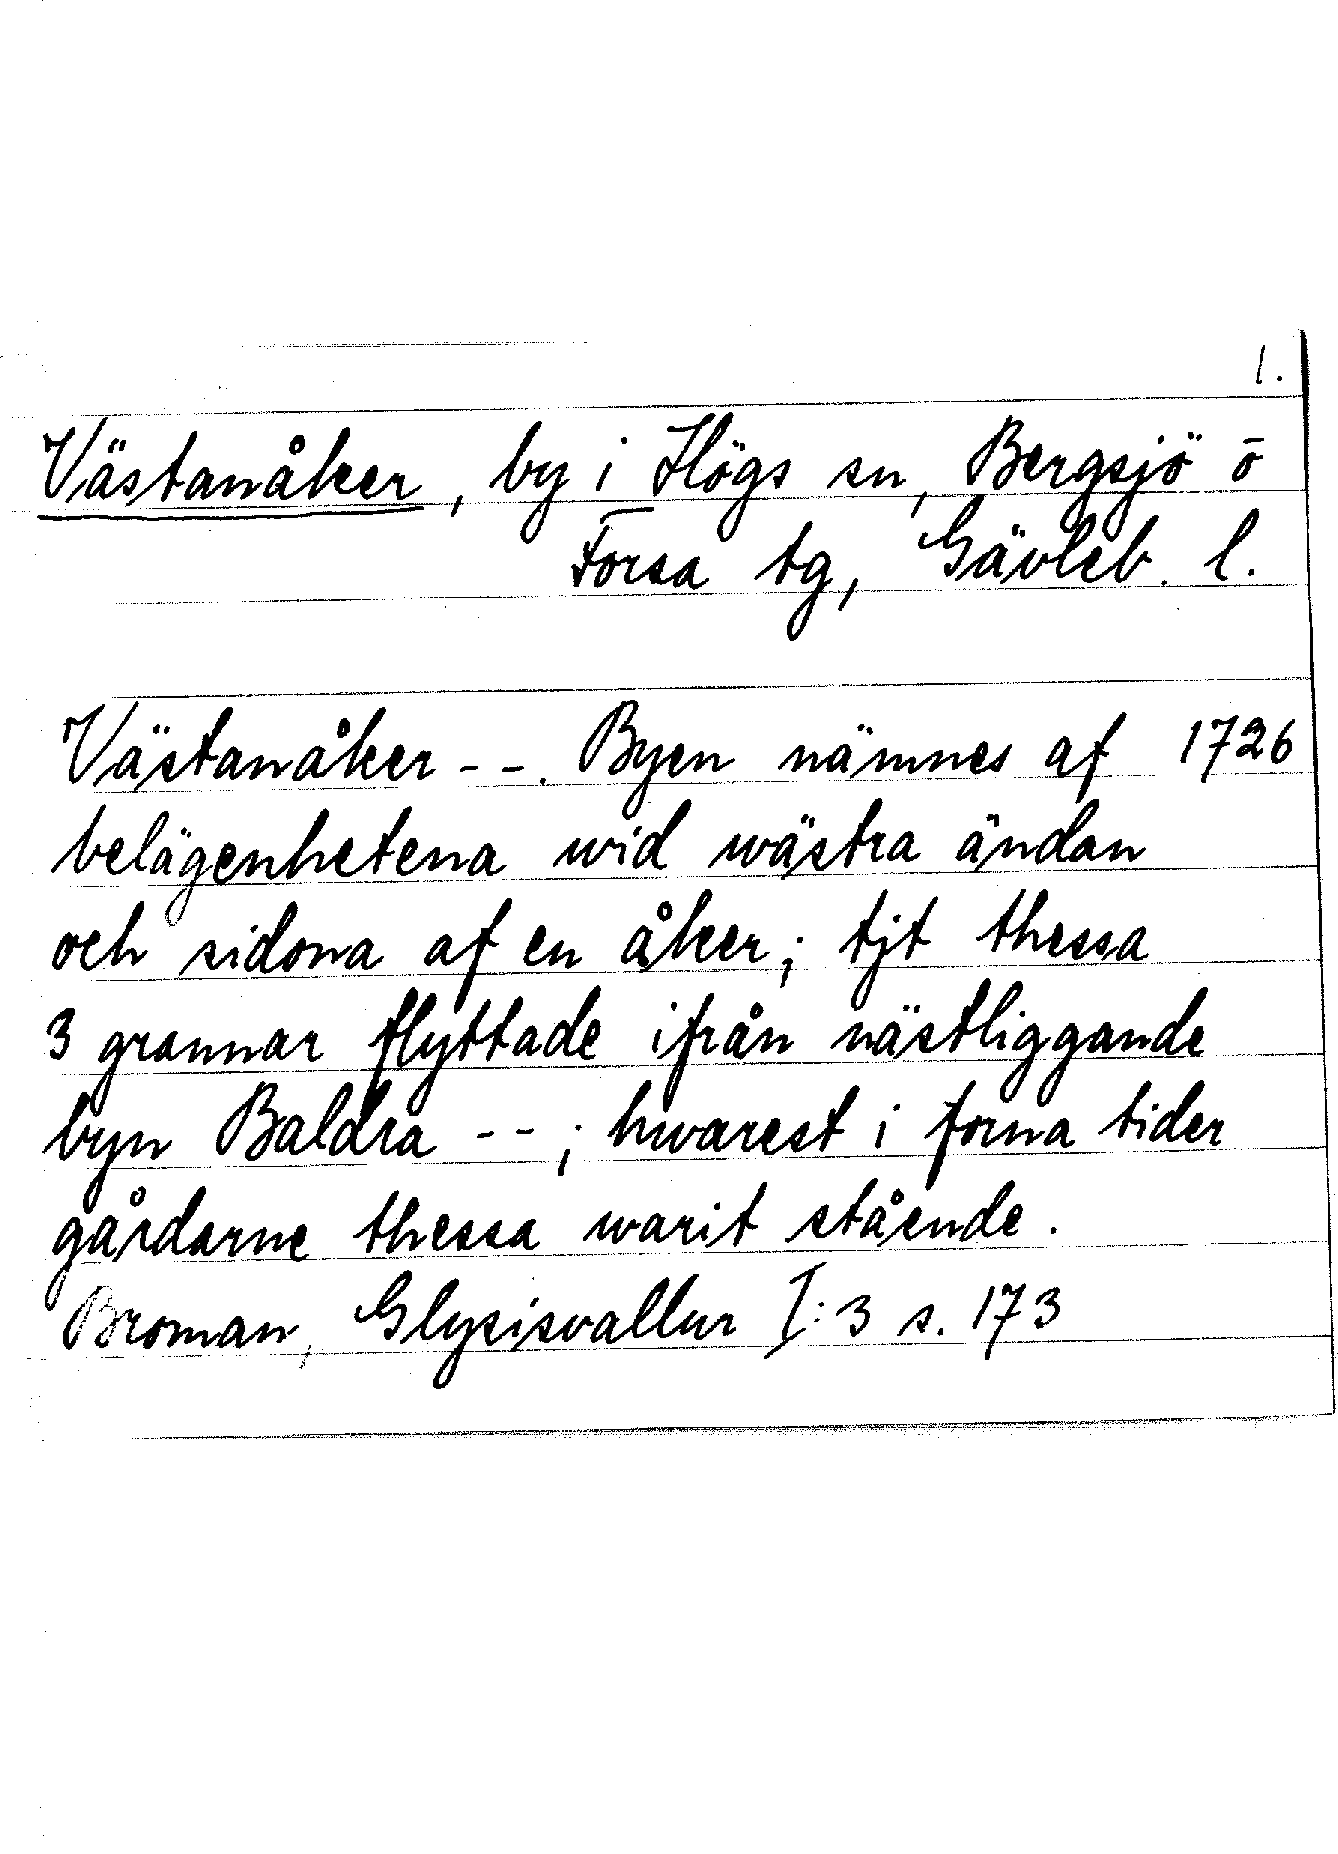 1.
Västanåker, by i Högs sn, Bergsjö o
Forsa tg, Gävleb. l.
Västanåker - -. Byen nämnes af 1726
belägenhetena wid wästra ändan
och sidona af en åker; tjt thessa
3 grannar flyttade ifrån nästliggande
byn Baldra - -; hwarest i forna tider
gårdarne thessa warit stående.
Broman, Glysisvallur I:3 s. 173